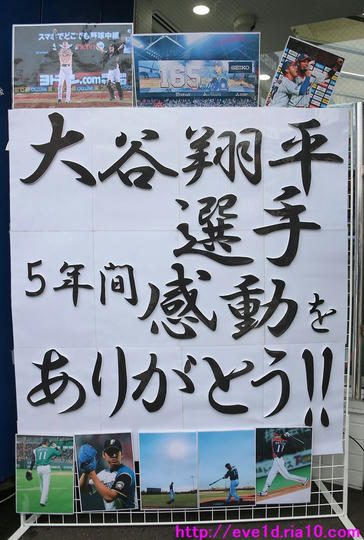 スマホでどこでも野球中継
ヨドバシ.com
165
SEIKO
大谷翔平
選手
5年間感動を
ありがとう!!
11
11
http://eve1d.ria10.com